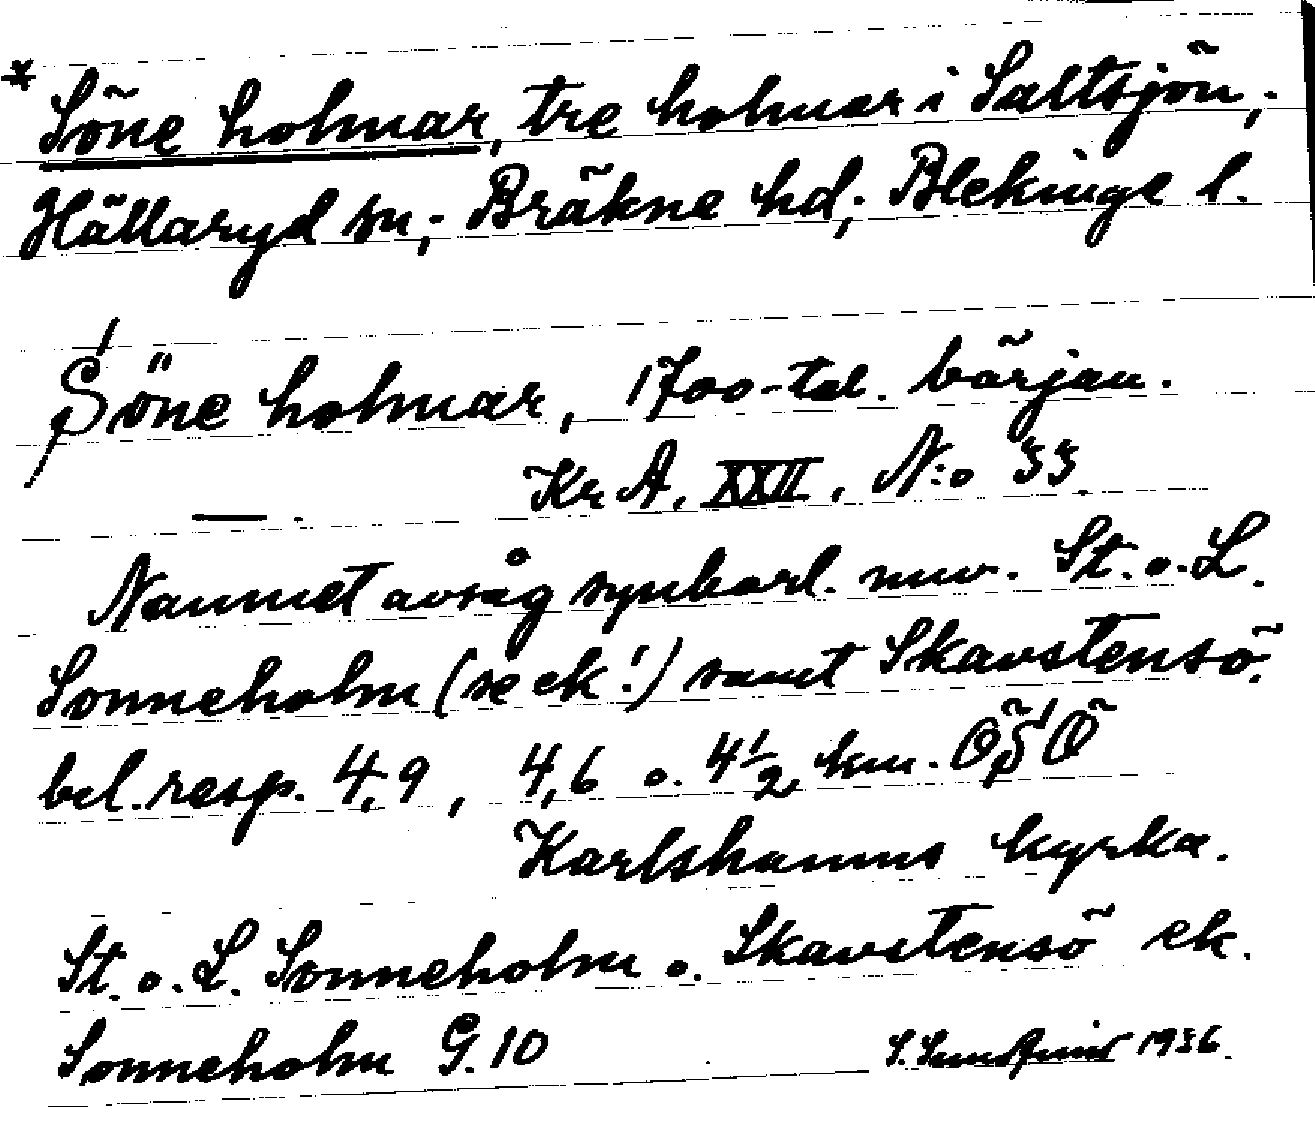 * Söne holmar, tre holmar i Saltsjön,
Hällaryd sn, Bräkne hd, Blekinge l.
Söne holmar, 1700-tal. början.
Kr A, XXII, N:o 33
—.
Namnet avsåg synbarl. nuv. St. o. L.
Sonneholm (se ek!) samt Skavstensö.
bel. resp. 4,9, 4,6 o. 4 1/2 km. ÖSÖ
Karlshamns kyrka.
St. o. L. Sonneholm o. Skavstensö ek.
Sonneholm G. 10
S. 1936.